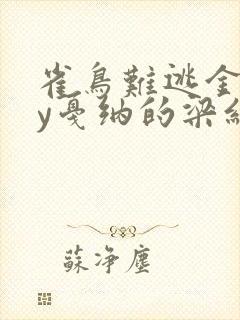 雀鳥難逃金
y戛纳的梁
蘇净塵